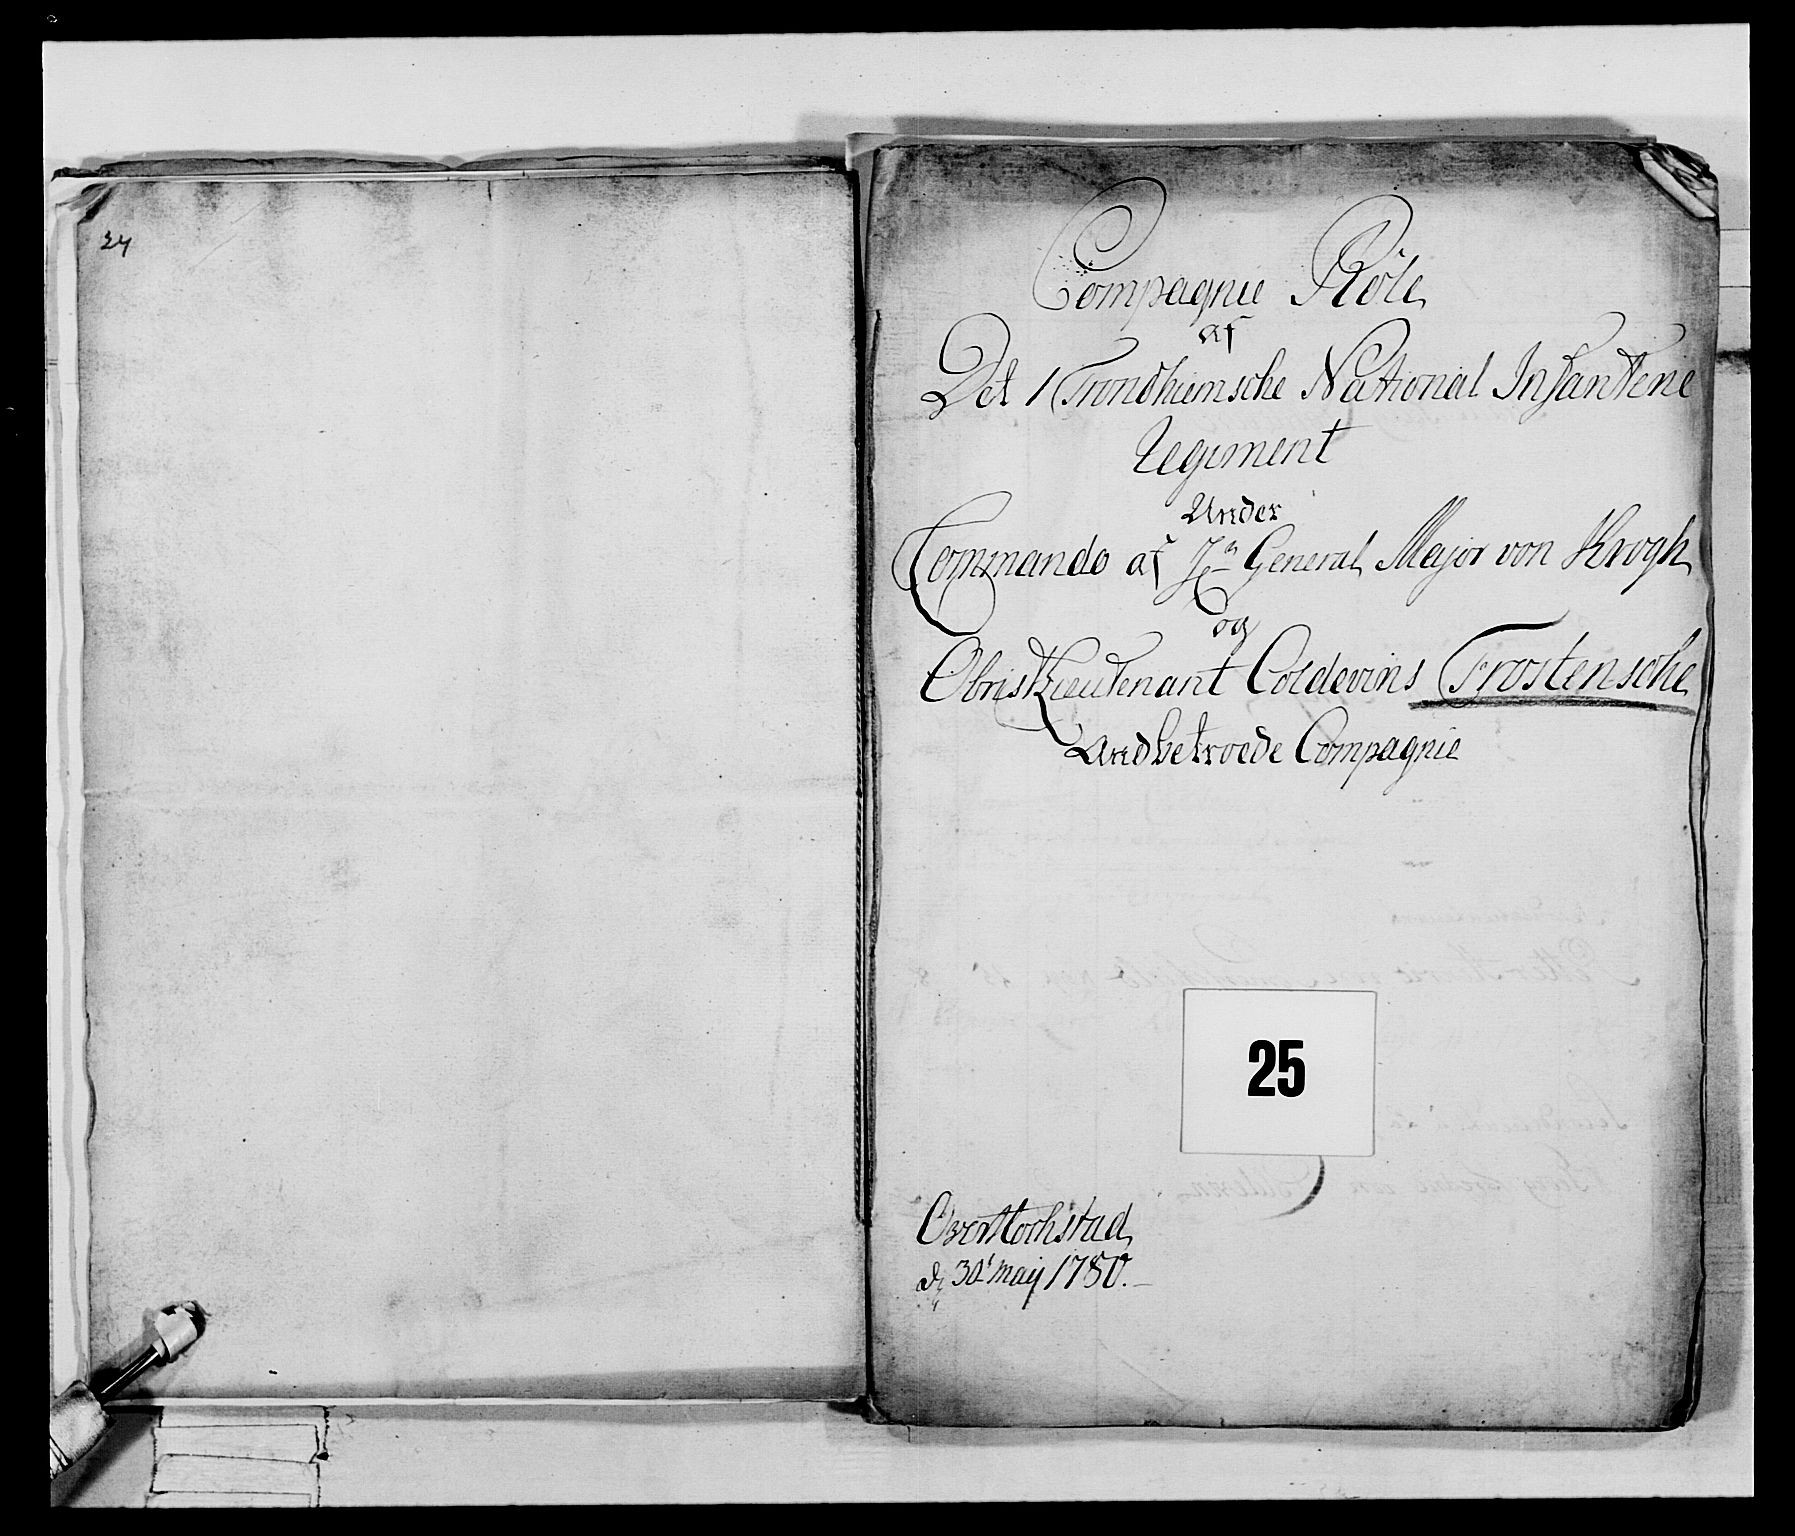 24
Compagnie Role
af
Det 1 Trondhiemsche National Infanterie
Regiment
Under
Commando af Hr General Major von Krogh
og
Obristlieutenant Coldevins Frostensche
Andbetroede Compagnie
25
Over Hochstad
d 30t Maij 1780.